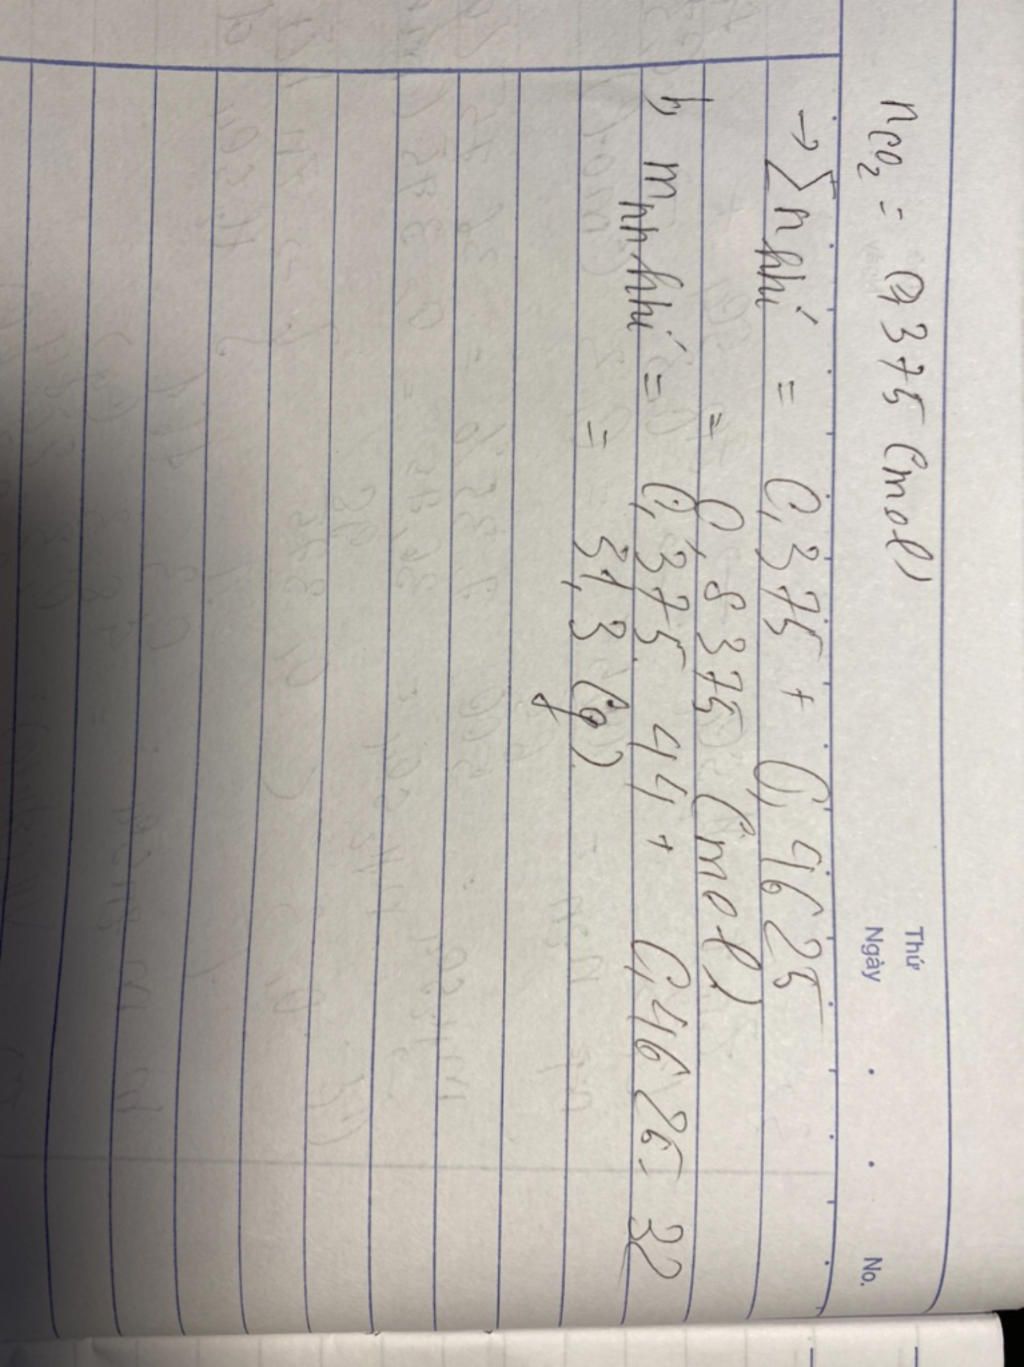 Thứ
Ngày . . No.
nCO₂ = 0,375 (mol)
→ ∑n khí = 0,375 + 0,4625
= 0,8375 (mol)
b, m hh khí = 0,375. 44 + 0,4625. 32
= 31,3 (g).